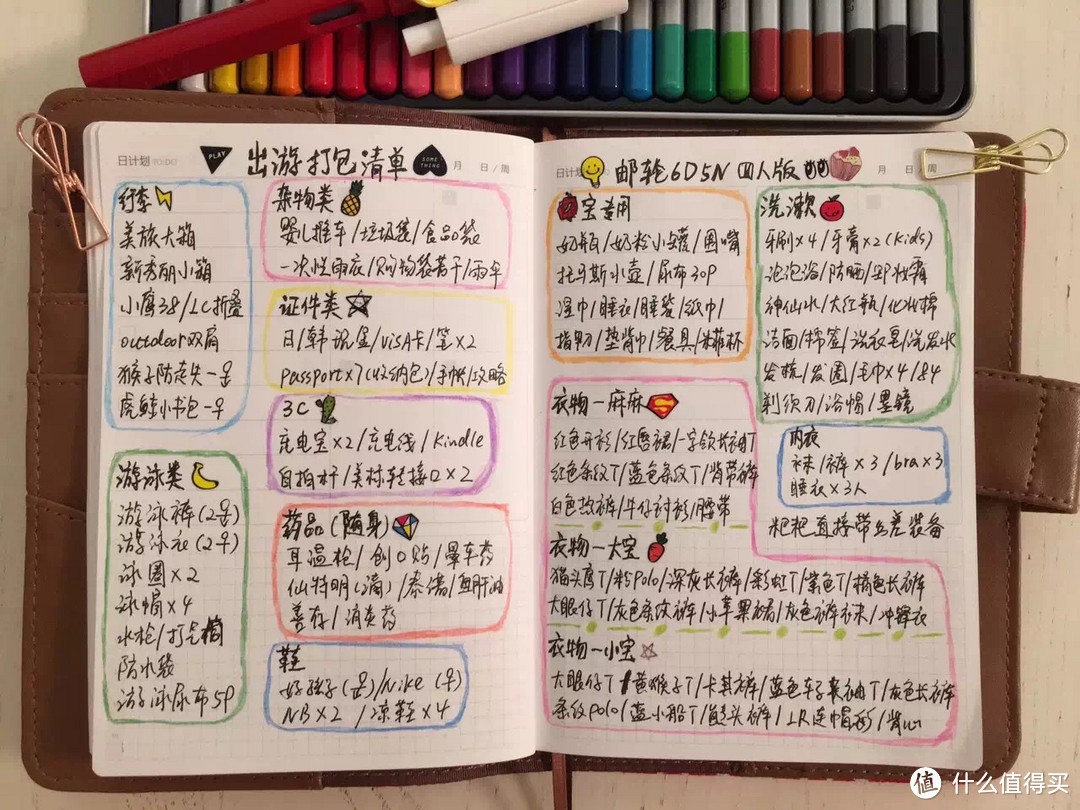 日计划 10:00
PLAY
出游打包清单
SOME THING
月 日/周
行李
美旅大箱
新秀丽小箱
小鹰38/LC折叠
outdoor双肩
猴子防走失一只
虎鲸小书包一只
游泳类
游泳裤(2号)
游泳衣(2号)
泳圈×2
泳帽×4
水枪/打气筒
防水袋
游泳尿布5P
杂物类
婴儿推车/垃圾袋/食品袋
一次性雨衣/购物袋若干/雨伞
证件类
日/韩现金/VISA卡/笔×2
passport×7(收纳包)/手帐/攻略
3C
充电宝×2/充电线/Kindle
自拍杆/美标转接口×2
药品(随身)
耳温枪/创口贴/晕车药
仙特明(滴)/泰诺/鱼肝油
善存/消炎药
鞋
好孩子(男)/Nike
NB×2/凉鞋×4
日计划
邮轮6D5N 四人版
月 日/周
宝专用
奶瓶/奶粉小罐/围嘴
托马斯水壶/尿布30P
湿巾/睡衣/睡袋/纸巾
指甲刀/垫背巾/餐具/米菲杯
洗漱
牙刷×4/牙膏×2(Kids)
泡泡浴/防晒/卸妆膏
神仙水/大红瓶/化妆棉
洁面/棉签/洗衣皂/洗发水
发梳/发圈/毛巾×4/84
剃须刀/浴帽/墨镜
内衣
袜/裤×3/bra×3
睡衣×3人
粑粑直接带出差装备
衣物－麻麻
红色开衫/红唇裙/一字领长袖T
红色条纹T/蓝色条纹T/背带裤
白色热裤/牛仔衬衫/腰带
衣物－大宝
猫头鹰T/粉Polo/深灰长裤/彩虹T/紫色T/橘色长裤
大眼仔T/灰色条纹裤/小苹果裙/灰色裤袜/冲锋衣
衣物－小宝
大眼仔T/黄猴子T/卡其裤/蓝色车子长袖T/灰色长裤
条纹Polo/蓝小船T/鲨头裤/JR连帽衫/背心
值 什么值得买